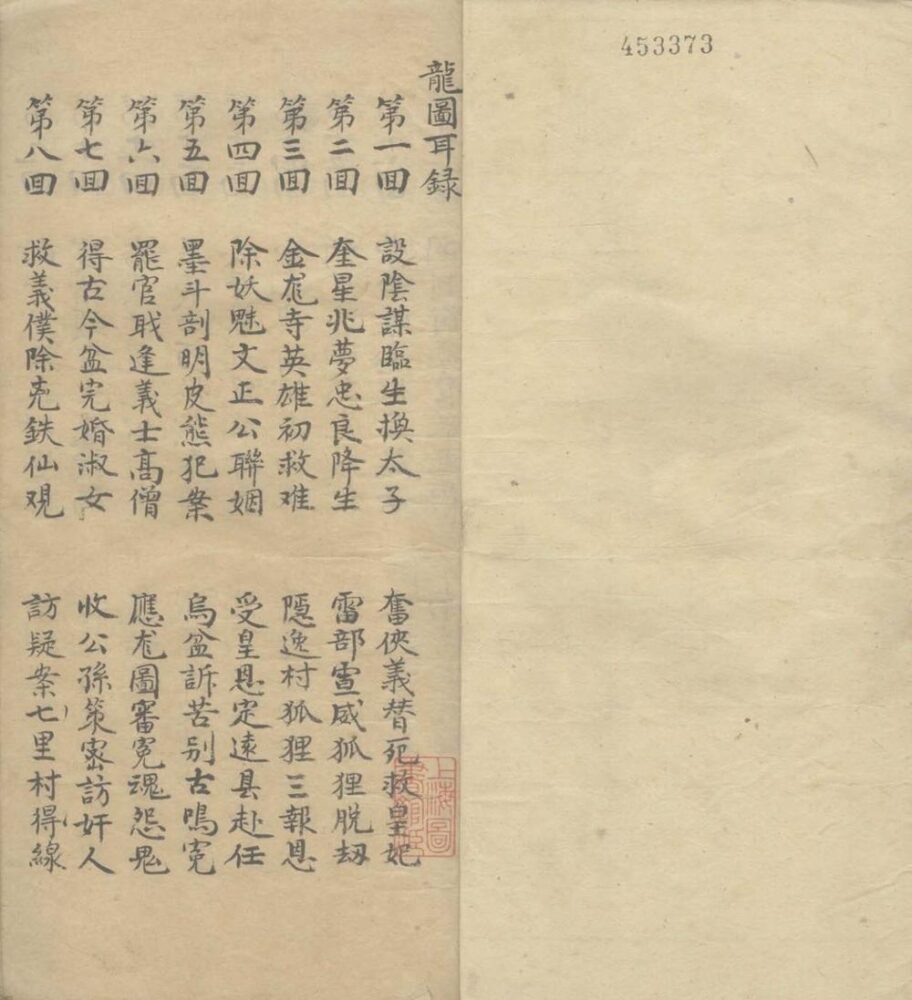 453373
龍圖耳録
第一囬 設陰謀臨生換太子 奮俠義替死救皇妃
第二囬 奎星兆夢忠良降生 雷部宣威狐狸脱刼
第三囬 金龙寺英雄初救难 隐逸村狐狸三報恩
第四囬 除妖魅文正公聯姻 受皇恩定遠县赴任
第五囬 墨斗剖明皮熊犯案 烏盆訴苦别古鳴寃
第六囬 罷官耺逢義士高僧 應龙圖審寃魂怨鬼
第七囬 得古今盆完婚淑女 收公孫策密訪奸人
第八囬 救義僕除兇鉄仙观 訪疑案七里村得線
上海圖
書館藏